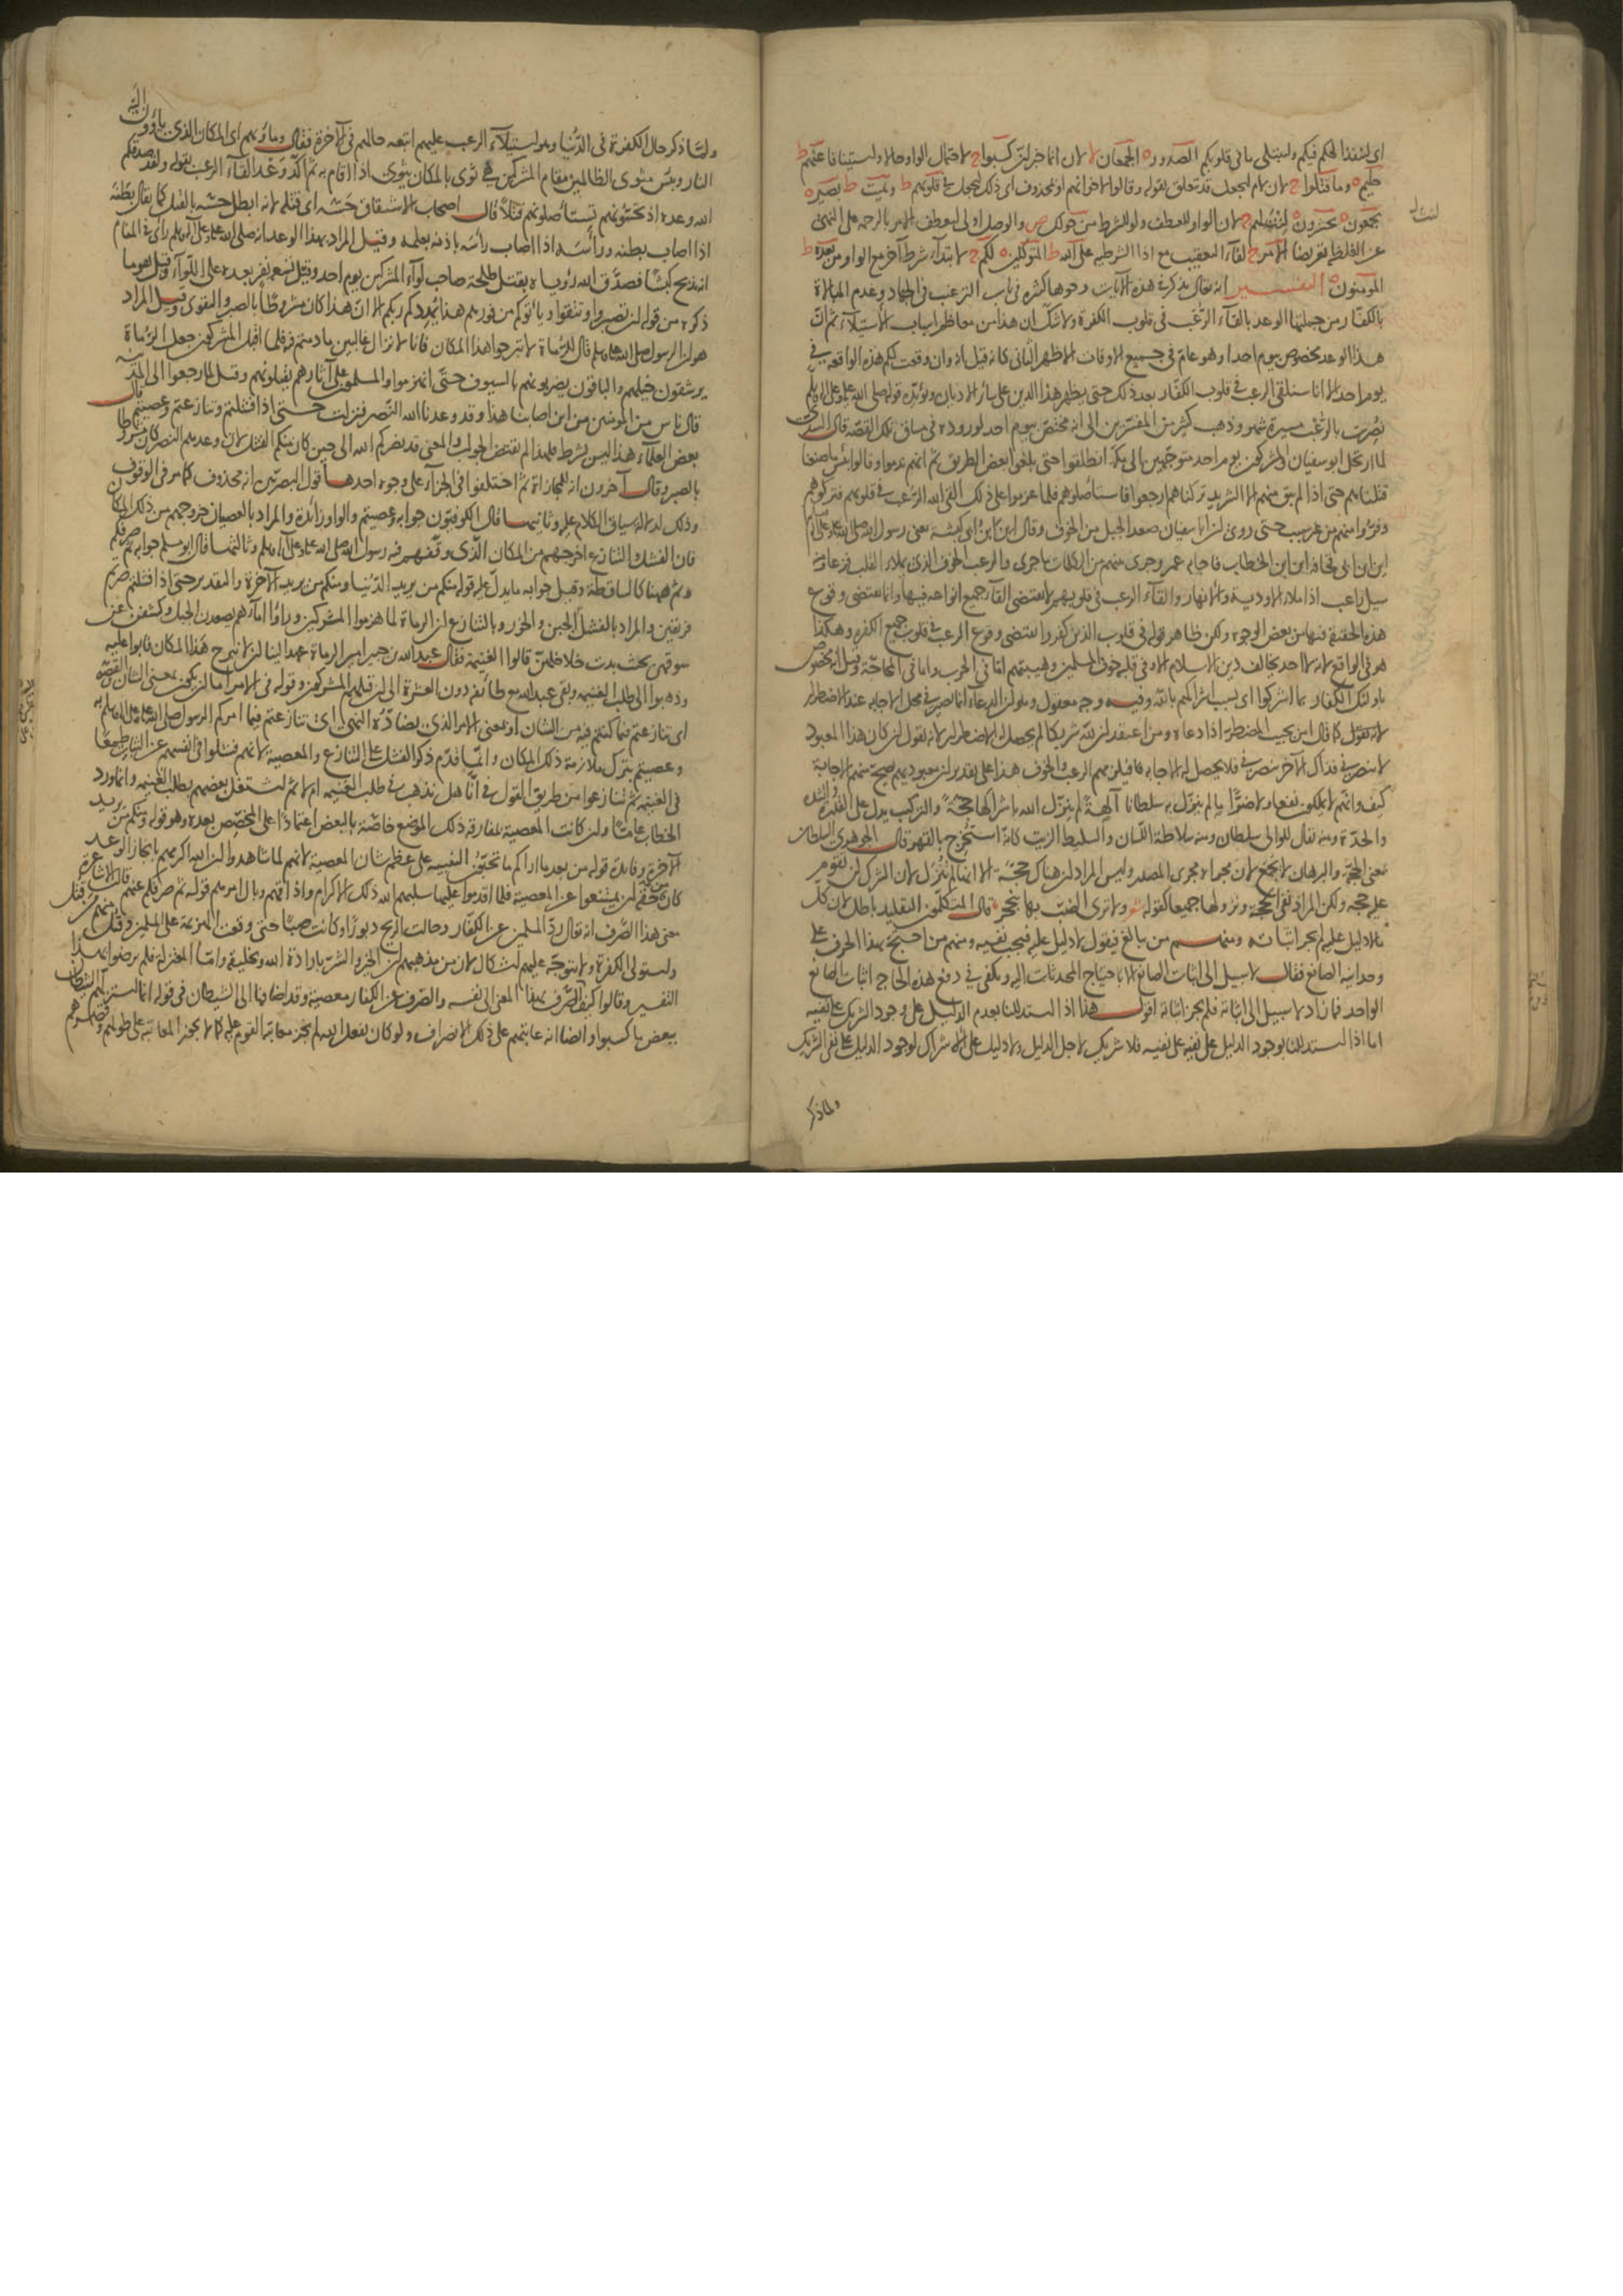 اى لينفذ الحكم فيكم وليبتلى ما فى قلوبكم الصدور ه الجمعان لا لان انما خبر ان كسبوا ج لاحتمال الواو حالا واستينافا عنهم ط
حليم ه وما قتلوا ج لان لام ليجعل قد تتعلق بقوله وقالوا لاخوانهم او بمحذوف اى ذلك ليجعل فى قلوبهم ط ويميت ط بصير ه
يجمعون ه تحشرون ه لنت لهم ج لان الواو للعطف ولو للشرط من حولك ص والوصل اولى ليعطف الامر بالرحمة على النهى
عن الغلظ تعريضا الامر ج لفاء التعقيب مع اذا الشرطية على الله ط المتوكلين ه لكم ج لابتداء شرط آخر مع الواو من بعده ط
المومنون ه التفسير انه تعالى يذكر فى هذه الآيات وجوها كثيرة فى باب الترغيب فى الجهاد وعدم المبالاة
بالكفار ومن جملتها الوعد بالقاء الرعب فى قلوب الكفرة ولا شك ان هذا من معاظم اسباب الاستيلاء ثم ان
هذا الوعد مخصوص بيوم احد او هو عام فى جميع الاوقات الاظهر الثانى كانه قيل انه وان وقعت لكم هذه الواقعة فى
يوم احد الا انا سنلقى الرعب فى قلوب الكفار بعد ذلك حتى يظهر هذا الدين على سائر الاديان ويؤيده قوله صلى الله عليه وعلى آله وسلم
نصرت بالرعب مسيرة شهر وذهب كثير من المفسرين الى انه مختص بيوم احد لوروده فى مساق تلك القصة قال السدى
لما ارتحل ابو سفيان والمشركون يوم احد متوجهين الى مكة انطلقوا حتى بلغوا بعض الطريق ثم انهم ندموا وقالوا بئس ما صنعنا
قتلناهم حتى اذا لم يبق منهم الا الشريد تركناهم ارجعوا فاستأصلوهم فلما عزموا على ذلك القى الله الرعب فى قلوبهم فتركوهم
وفروا منهم من غير سبب حتى روى ان ابا سفيان صعد الجبل من الخوف وقال اين ابن ابى كبشة يعنى رسول الله صلى الله عليه وعلى آله وسلم
اين ابن ابى قحافة اين ابن الخطاب فاجابه عمر وجرى منهم من الكلمات ما جرى والرعب الخوف الذى يملا القلب فزعا من
سيل راعب اذا ملا الاودية والانهار والقاء الرعب فى قلوبهم لا يقتضى القاء جميع انواعه فيها وانما يقتضى وقوع
هذه الحقيقة فيها من بعض الوجوه ولكن ظاهر قوله فى قلوب الذين كفروا يقتضى وقوع الرعب فى قلوب جميع الكفرة وهكذا
هو فى الواقع لانه لا احد يخالف دين الاسلام الا وفى قلبه خوف المسلمين وهيبتهم اما فى الحرب واما فى المحاجة وقيل انه مخصوص
باولئك الكفار بما اشركوا اى بسبب اشراكهم بالله وفيه وجه معقول وهو ان الدعاء انما يصير فى محل الاجابة عند الاضطرار
كما قال امن يجيب المضطر اذا دعاه ومن اعتقد ان لله شريكا لم يحصل له الاضطرار لانه يقول ان كان هذا المعبود
لا ينصرنى فذاك الآخر ينصرنى فلا يحصل له الاجابة
كيف وانهم لا يملكون نفعا ولا ضرا ما لم ينزل به سلطانا آلهة لم ينزل الله باشراكها حجة والتركيب يدل على القدرة والشدة
والحدة ومنه يقال للوالى سلطان ومنه سلاطة اللسان والسليط الزيت كانه استخرج بالقهر قال الجوهرى السلطان
بمعنى الحجة والبرهان لا يجمع لان مجراه مجرى المصدر وليس المراد ان هناك حجة الا انها لم تنزل لان الشرك لن تقوم
عليه حجة ولكن المراد نفى الحجة ونزولها جميعا كقوله ولا ترى الضب بها ينجحر قال المتكلمون التقليد باطل لان كل
ما لا دليل عليه لم يجز اثباته ومنهم من يبالغ فيقول لا دليل عليه فيجب نفيه ومنهم من احتج بهذا الحرف على
وحدانية الصانع فقال لا سبيل الى اثبات الصانع الا باحتياج المحدثات اليه ويكفى فى دفع هذه الحاجة اثبات الصانع
الواحد فما زاد لا سبيل الى اثباته فلم يجز اثباته اقول هذا اذا استدللنا بعدم الدليل على وجود الشريك على نفيه
اما اذا استدللنا بوجود الدليل على نفيه على نفيه فلا شريك لاجل الدليل ولا دليل على الاشراك لوجود الدليل على نفى الشريك
ولما ذكر
ولما ذكر حال الكفرة فى الدنيا وهو استيلاء الرعب عليهم اتبعه حالهم فى الآخرة فقال وماويهم اى المكان الذى ياوون اليه
النار وبئس مثوى الظالمين مقام المشركين من ثوى بالمكان يثوى اذا اقام به ثم اكد وعد القاء الرعب بقوله ولقد صدقكم
الله وعده اذ تحسونهم تستأصلونهم قتلا قال اصحاب الاشتقاق حسه اى قتله لانه ابطل حسه بالقتل كما يقال بطنه
اذا اصاب بطنه ورأسه اذا اصاب رأسه باذنه بعلمه وقيل المراد بهذا الوعد انه صلى الله عليه وعلى آله وسلم رأى فى المنام
انه يذبح كبشا فصدق الله رؤياه بقتل طلحة صاحب لواء المشركين يوم احد وقتل تسعة نفر بعده على اللواء وقيل هو ما
ذكره من قوله ان تصبروا وتتقوا ويأتوكم من فورهم هذا يمددكم ربكم الا ان هذا كان مشروطا بالصبر والتقوى وقيل المراد
هو ان الرسول صلى الله عليه وسلم قال للرماة لا تبرحوا هذا المكان فانا لا نزال غالبين ما دمتم فيه فلما اقبل المشركون جعل الرماة
يرشقون خيلهم والباقون يضربونهم بالسيوف حتى انهزموا والمسلمون على آثارهم يقتلونهم وقيل لما رجعوا الى المدينة
قال ناس من المومنين من اين اصابنا هذا وقد وعدنا الله النصر فنزلت حتى اذا فشلتم وتنازعتم وعصيتم قال
بعض العلماء هذا ليس بشرط فلهذا لم يقتض الجواب والمعنى قد نصركم الله الى حين كان منكم الفشل لان وعدهم النصر كان مشروطا
بالصبر وقال آخرون انه للمجازاة ثم اختلفوا فى الجزاء على وجوه احدها قول البصريين انه محذوف كما مر فى الوقوف
وذلك لدلالة سياق الكلام عليه وثانيها قال الكوفيون جوابه وعصيتم والواو زائدة والمراد بالعصيان خروجهم من ذلك المكان
فان الفشل والتنازع اخرجهم من المكان الذى وقفهم فيه رسول الله صلى الله عليه وعلى آله وسلم وثالثها قال ابو مسلم جوابه ثم صرفكم
وثم ههنا كالساقطة وقيل جوابه ما يدل عليه قوله منكم من يريد الدنيا ومنكم من يريد الآخرة والمقدير حتى اذا فشلتم صرتم
فريقين والمراد بالفشل الجبن والخور وبالتنازع ان الرماة لما هزموا المشركين ورأوا اماءهم يصعدن الجبل وكشفن عن
سوقهن بحيث بدت خلاخلهن قالوا الغنيمة فقال عبد الله بن جبير امير الرماة عهد الينا ان لا نبرح هذا المكان فابوا عليه
وذهبوا الى طلب الغنيمة وبقى عبد الله مع طائفة دون العشرة الى ان قتلهم المشركون وقوله فى الامر اما ان يكون بمعنى الشان والقصة
اى تنازعتم فيما كنتم فيه من الشان او بمعنى الامر الذى يضاده النهى اى تنازعتم فيما امركم الرسول صلى الله عليه وعلى آله وسلم به
وعصيتم بترك ملازمة ذلك المكان وانما قدم ذكر الفشل على التنازع والمعصية لانهم فشلوا فى انفسهم عن الثبات طمعا
فى الغنيمة ثم تنازعوا من طريق القول فى انا هل نذهب فى طلب الغنيمة ام لا ثم اشتغل بعضهم بطلب الغنيمة وانما ورد
الخطاب عاما وان كانت المعصية بمفارقة ذلك الموضع خاصة بالبعض اعتمادا على المخصص بعده وهو قوله ومنكم من يريد
الآخرة وفائدة قوله من بعد ما اراكم ما تحبون التنبيه على عظم شان المعصية لانهم لما شاهدوا ان الله اكرمهم بانجاز الوعد
كان من حقهم ان يمتنعوا عن المعصية فلما اقدموا عليها سلبهم الله ذلك الاكرام واذاقهم وبال امرهم قوله ثم صرفكم عنهم قالت الاشاعرة
معنى هذا الصرف انه تعالى رد المسلمين عن الكفار وحالت الريح دبورا وكانت صبا حتى وقعت الهزيمة على المسلمين وقتل منهم من قتل
واستولى الكفرة ولا يتوجه عليهم اشكال لان من مذهبهم ان الخير والشر بارادة الله وتخليقه واما المعتزلة فلم يرضوا بهذا
التفسير وقالوا كيف الصرف بهذا المعنى الى نفسه والصرف عن الكفار معصية وقد اضافها الى الشيطان فى قوله انما استزلهم الشيطان
ببعض ما كسبوا وايضا انه عاتبهم على ذلك الانصراف ولو كان بفعل الله لم يجز معاتبة القوم عليه كما لا يجوز المعاتبة على طولهم وقصرهم